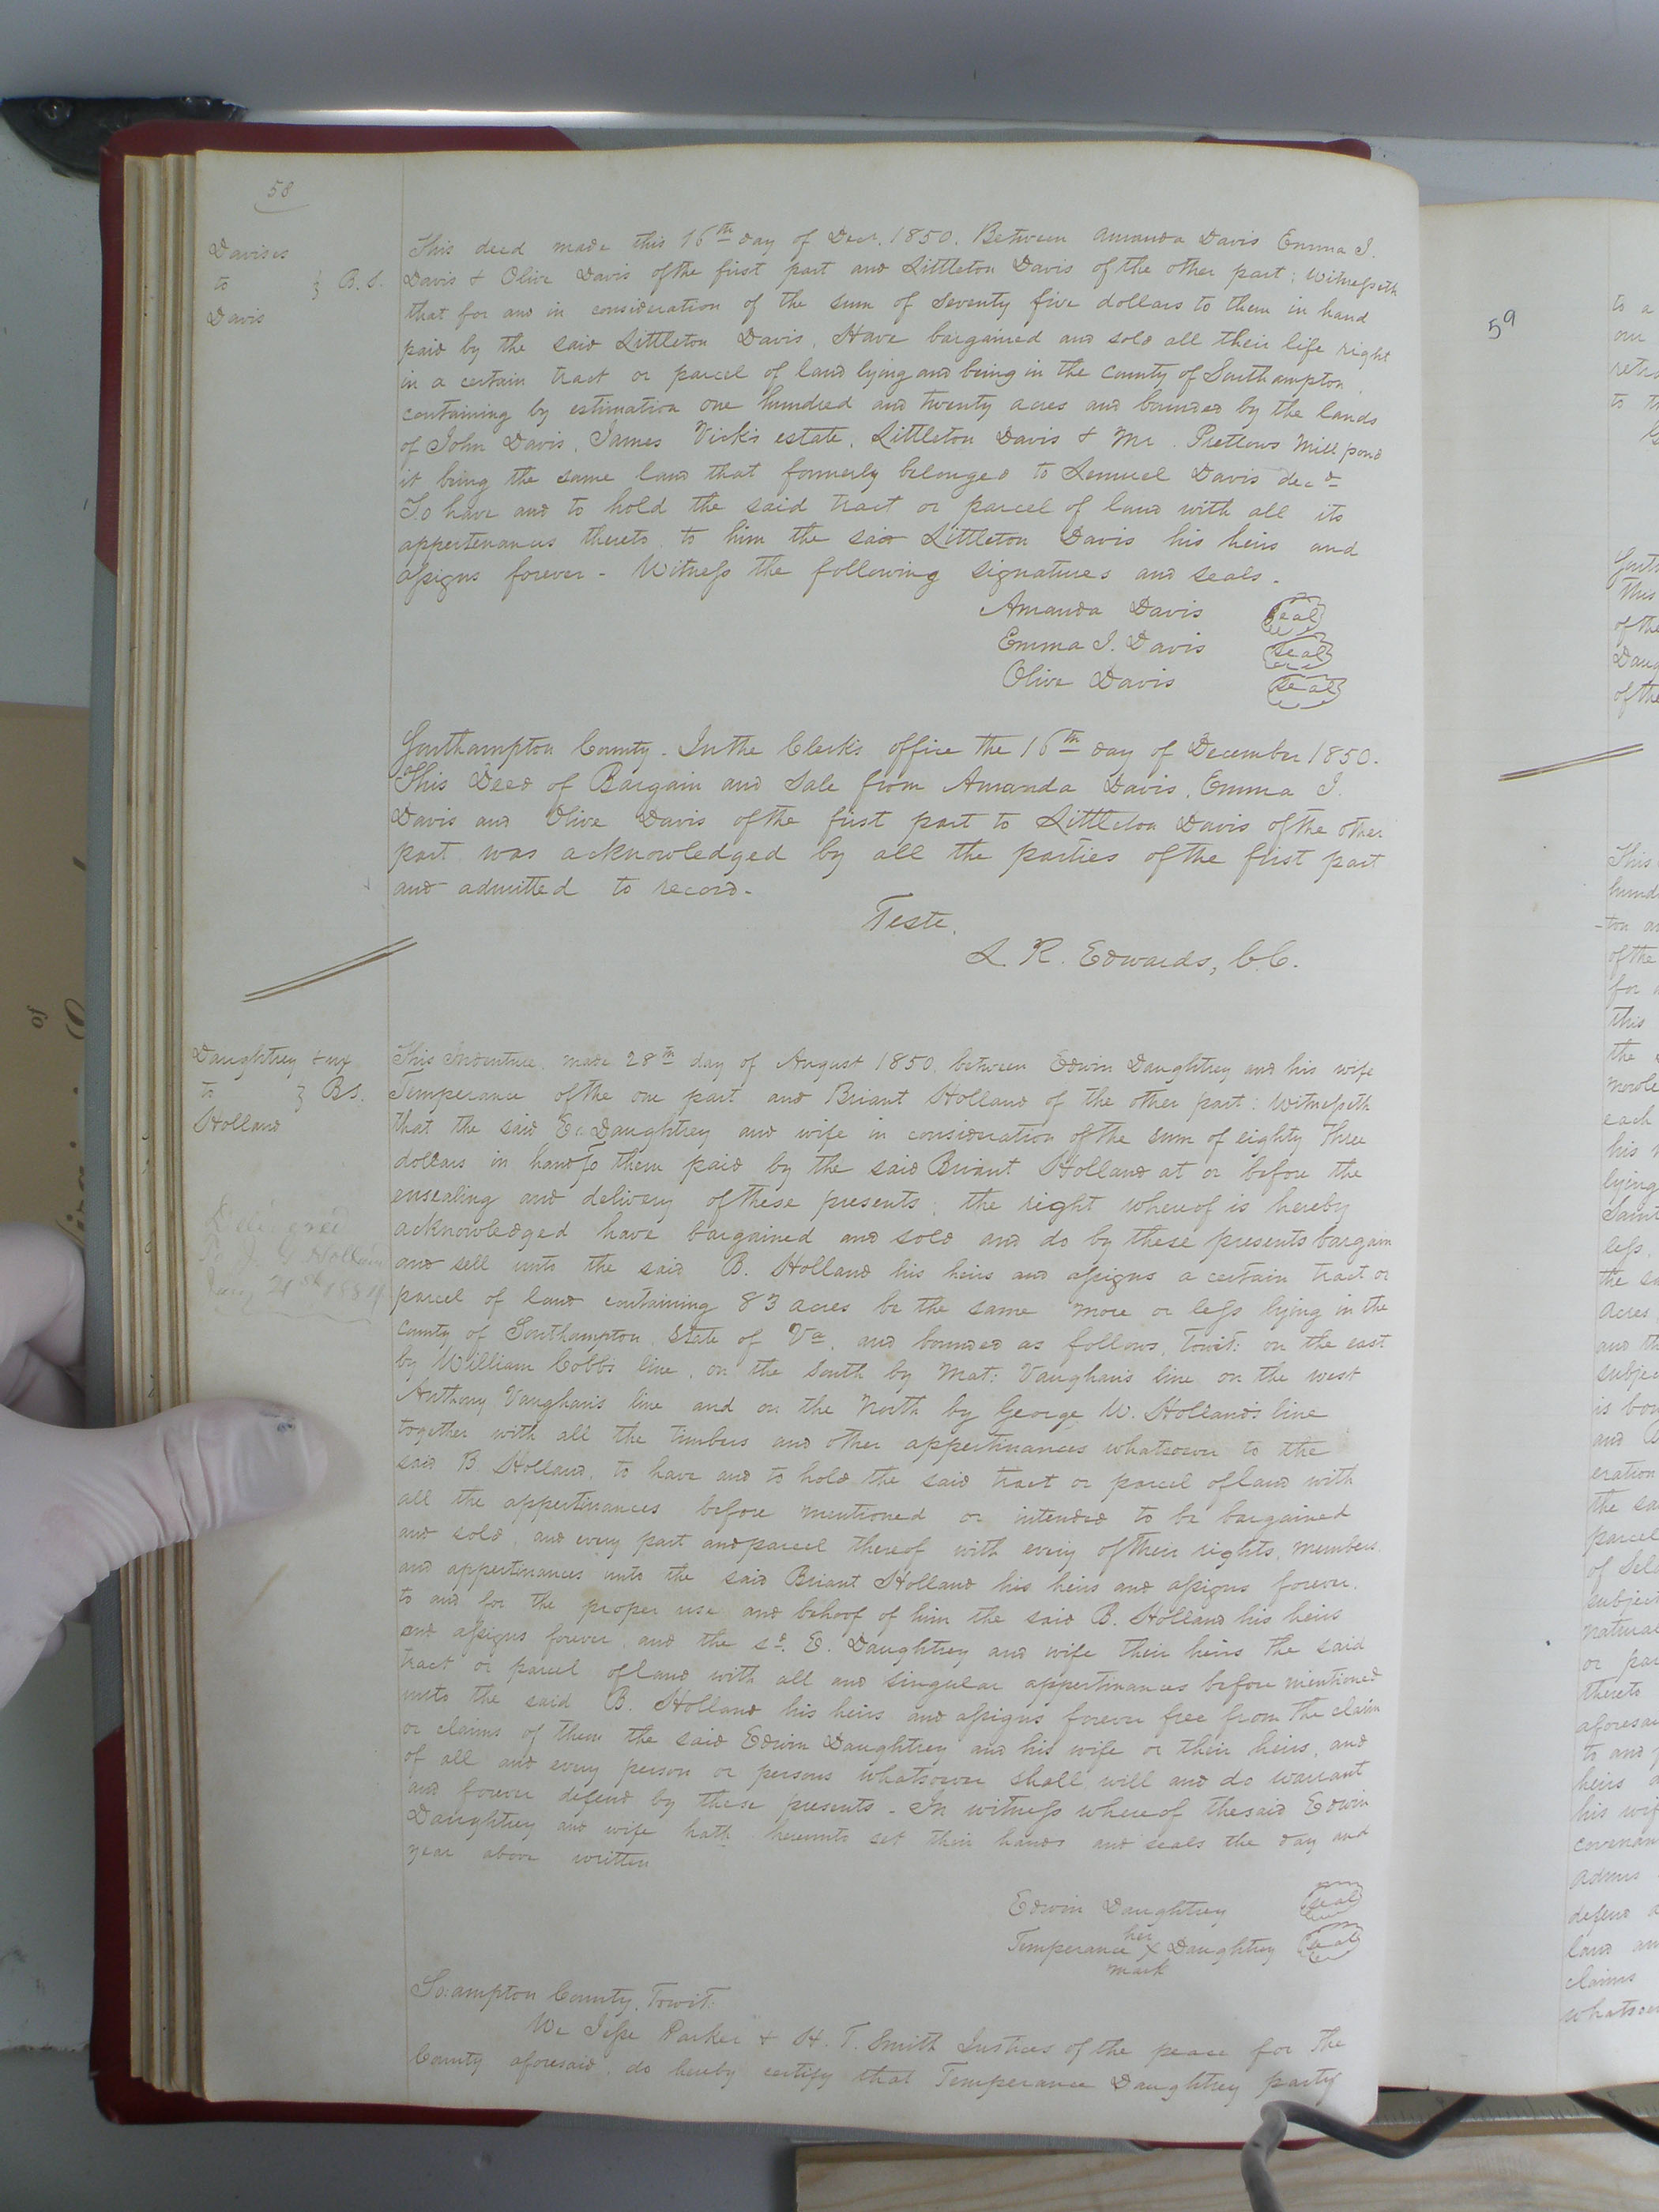 58
Davises
to } B. S.
Davis
This deed made this 16th day of Decr. 1850. Between Amanda Davis Emma J.
Davis & Olive Davis of the first part and Littleton Davis of the other part; Witnesseth
that for and in consideration of the sum of Seventy five dollars to them in hand
paid by the said Littleton Davis, Have bargained and sold all their life right
in a certain tract or parcel of land lying and being in the County of Southampton
containing by estimation one hundred and twenty acres and bounded by the lands
of John Davis, James Vick's estate, Littleton Davis & Mr. Pretlows Mill pond
it being the same land that formerly belonged to Lemuel Davis decd
To have and to hold the said tract or parcel of land with all its
appertenances thereto, to him the said Littleton Davis his heirs and
assigns forever - Witness the following signatures and seals -
Amanda Davis seal
Emma J. Davis seal
Olive Davis seal
Southampton County. In the Clerk's office the 16th day of December 1850.
This Deed of Bargain and Sale from Amanda Davis, Emma J.
Davis and Olive Davis of the first part to Littleton Davis of the other
part was acknowledged by all the parties of the first part
and admitted to record -
Teste,
L. R. Edwards, C. C.
Daughtrey & ux
to } B S.
Holland
Delivered
To J. G. Holland
21st 1884
This Indenture, made 28th day of August 1850, between Edwin Daughtrey and his wife
Temperance of the one part and Briant Holland of the other part: Witnesseth
that the said E. Daughtrey and wife in consideration of the sum of eighty three
dollars in hand to them paid by the said Briant Holland at or before the
ensealing and delivery of these presents, the right whereof is hereby
acknowledged have bargained and sold and do by these presents bargain
and sell unto the said B. Holland his heirs and assigns a certain tract or
parcel of land containing 83 acres be the same more or less lying in the
County of Southampton State of Va. and bounded as follows, towit: on the east
by William Cobb's line, on the South by Mat: Vaughan's line on the west
Anthony Vaughan's line and on the North by George W. Holland's line
together with all the timbers and other appertinances whatsoever to the
said B Holland, to have and to hold the said tract or parcel of land with
all the appertinances before mentioned or intended to be bargained
and sold, and every part and parcel thereof with every of their rights, members,
and appertinances unto the said Briant Holland his heirs and assigns forever.
to and for the proper use and behoof of him the said B. Holland his heirs
and assigns forever, and the sd. E. Daughtrey and wife their heirs the said
tract or parcel of land with all and singular appertinances before mentioned
unto the said B. Holland his heirs and assigns forever free from the claim
or claims of them the said Edwin Daughtrey and his wife or their heirs, and
of all and every person or persons whatsoever shall, will and do warrant
and forever defend by these presents - In witness whereof the said Edwin
Daughtrey and wife hath hereunto set their hands and seals the day and
year above written
Edwin Daughtrey seal
her
Temperance X Daughtrey seal
mark
So:ampton County, Towit:
We Jesse Parker & H. T. Smith Justices of the peace for the
County aforesaid, do hereby certify that Temperance Daughtrey party
59
to a
our
to
This
of the
Daug
of the
This
hund
of the
for
this
the
each
his
lying
Saint
less,
the
acres
and
subje
is
and
eration
the
parcel
of
subject
natural
or par
thereto
aforesai
to and
heirs
his wif
covenan
defend
land
claims
whatsoe
of